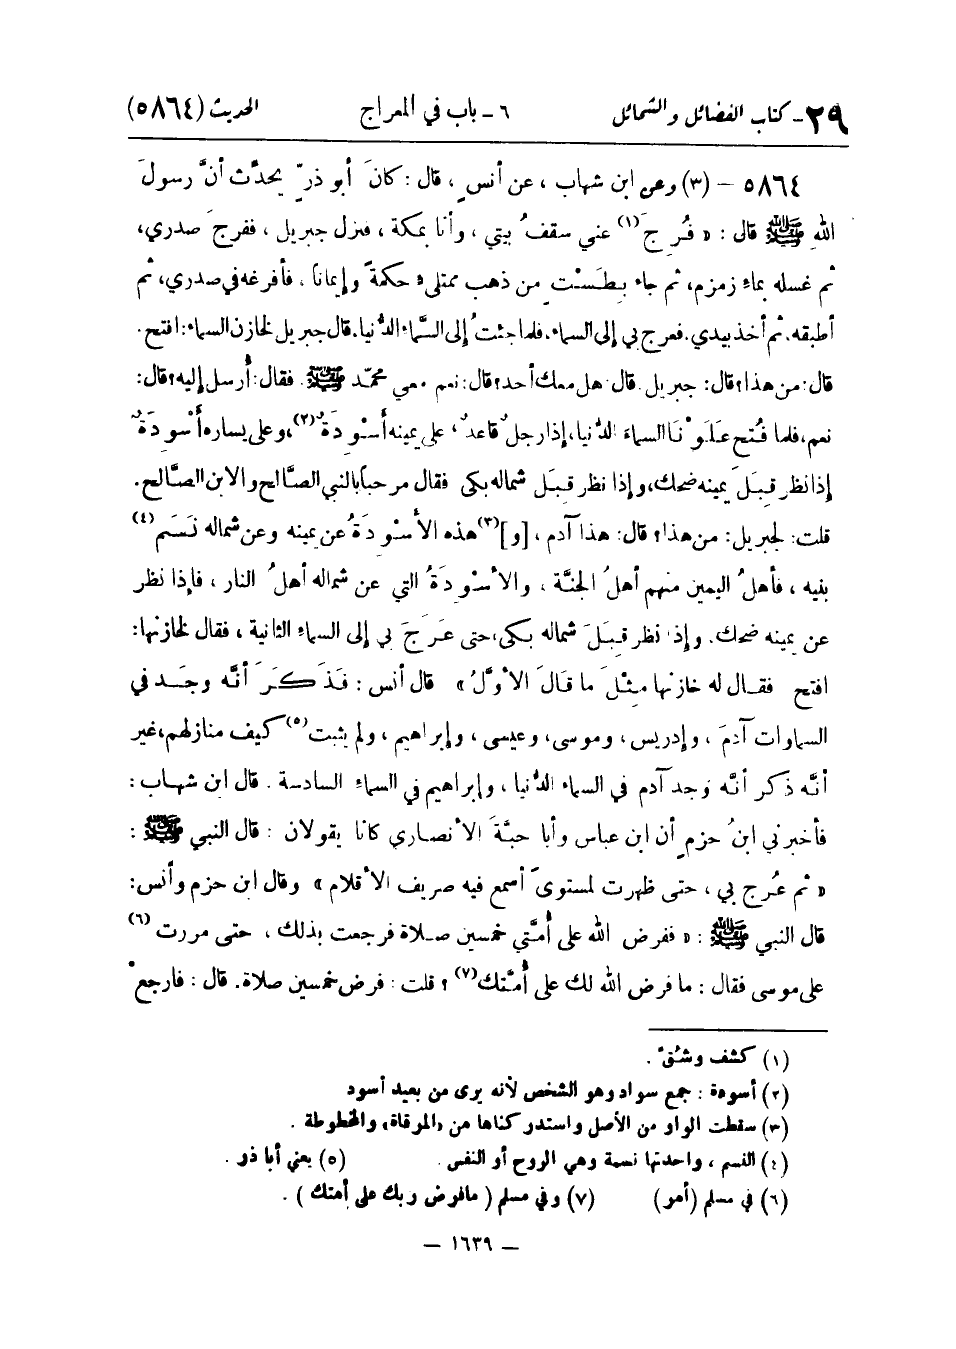 ٢٩- كتاب الفضائل والشمائل ٦ - باب في المعراج الحديث (٥٨٦٤)
٥٨٦٤ - (٣) وعن ابن شهاب ، عن أنسٍ ، قال : كانَ أبو ذرٍّ يحدَّث أنَّ رسولَ
اللهِ ﷺ قال : « فُرِجَ(١) عني سقفُ بيتي ، وأنا بمكة ، فنزل جبريل ، ففرجَ صدري،
ثم غسله بماءِ زمزم، ثم جاء بطَسْتٍ من ذهب ممتلىء حكمةً وإيماناً ، فأفرغه في صدري، ثم
أطبقه. ثم أخذ بيدي. فعرج بي إلى السماء. فلما جئتُ إلى السَّماء الدُّنيا. قال جبريل لخازن السماء: افتح.
قال: من هذا؟ قال: جبريل. قال: هل معك أحد؟ قال: نعم معي محمّد ﷺ. فقال: أُرسل إليه؟ قال:
نعم، فلما فُتح عَلَوْنَا السماءَ الدُّنيا، إذا رجلٌ قاعدٌ، على يمينه أسْوِدَةٌ(٢)، وعلى يساره أسْوِدَةٌ
إذا نظر قِبَلَ يمينه ضحك، وإذا نظر قِبَل شماله بكى فقال مرحباً بالنبي الصَّالح والابن الصَّالح.
قلت: لجبريل: من هذا؟ قال: هذا آدم ، [و](٣) هذه الأسْوِدَةُ عن يمينه وعن شماله نَسَم(٤)
بنيه ، فأهلُ اليمين منهم أهلُ الجنَّة ، والأسْوِدَةُ التي عن شماله أهلُ النار ، فإذا نظر
عن يمينه ضحك. وإذا نظر قِبَلَ شماله بكى، حتى عَرَجَ بي إلى السماءِ الثانية ، فقال لخازنها:
افتح فقال له خازنها مِثْلَ ما قالَ الأوَّلُ » قال أنس : فَذَكَرَ أنَّه وجَد في
السماوات آدمَ ، وإدريس، وموسى، وعيسى ، وإبراهيم ، ولم يثبت(٥) كيف منازلهم، غير
أنَّه ذكر أنَّه وَجد آدم في السماء الدُّنيا ، وإبراهيم في السماءِ السادسة . قال ابن شهاب :
فأخبرني ابنُ حزمٍ أن ابن عباس وأبا حبَّةَ الأنصاري كانا يقولان : قال النبي ﷺ :
« ثم عُرج بي ، حتى ظهرت لمستوىً أسمع فيه صريف الأقلام » وقال ابن حزم وأنس:
قال النبي ﷺ : « ففرض الله على أُمَّتي خمسين صلاة فرجعت بذلك ، حتى مررت(٦)
على موسى فقال : ما فرض الله لك على أُمَّتك(٧) ؟ قلت : فرض خمسين صلاة. قال : فارجعْ
(١) كشف وشُقّ .
(٢) أسودة : جمع سواد وهو الشخص لأنه يرى من بعيد أسود
(٣) سقطت الواو من الأصل واستدركناها من «المرقاة» والمخطوطة .
(٤) النسم ، واحدتها نسمة وهي الروح أو النفس . (٥) يعني أبا ذر .
(٦) في مسلم (أمر) (٧) وفي مسلم ( مافرض ربك على أمتك ) .
— ١٦٣٩ —